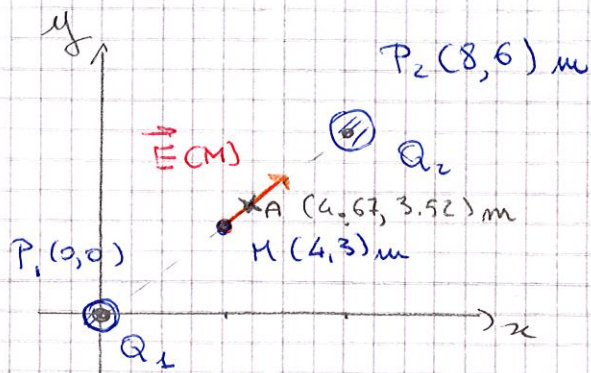 y
P₂ (8,6) m
E⃗(M)
Q₂
A (4.67, 3.52) m
P₁(0,0)
M(4,3)m
x
Q₁